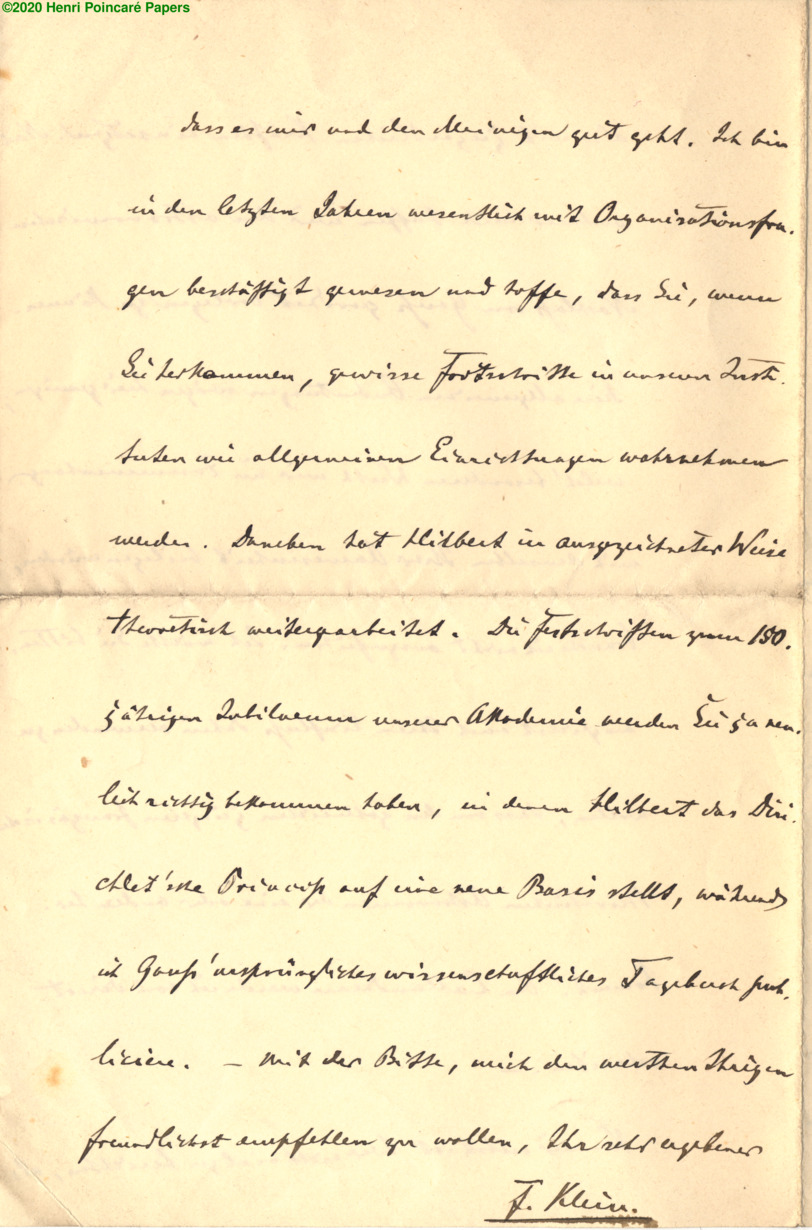 ©2020 Henri Poincaré Papers
dass es mir und den Meinigen gut geht. Ich bin
in den letzten Jahren wesentlich mit Organisationsfra-
gen beschäftigt gewesen und hoffe, dass Sie, wenn
Sie herkommen, gewisse Fortschritte in unseren Insti-
tuten wie allgemeinen Einrichtungen wahrnehmen
werden. Daneben hat Hilbert in ausgezeichneter Weise
theoretisch weitergearbeitet. Die Festschriften zum 150.
jährigen Jubilaeum unserer Akademie werden Sie ja neu-
lich richtig bekommen haben, in denen Hilbert das Diri-
chlet'sche Princip auf eine neue Basis stellt, während
ich Gauß' ursprüngliches wissenschaftliches Tagebuch pub-
liciere. – Mit der Bitte, mich den werthen Ihrigen
freundlichst empfehlen zu wollen, Ihr sehr ergebener
F. Klein.